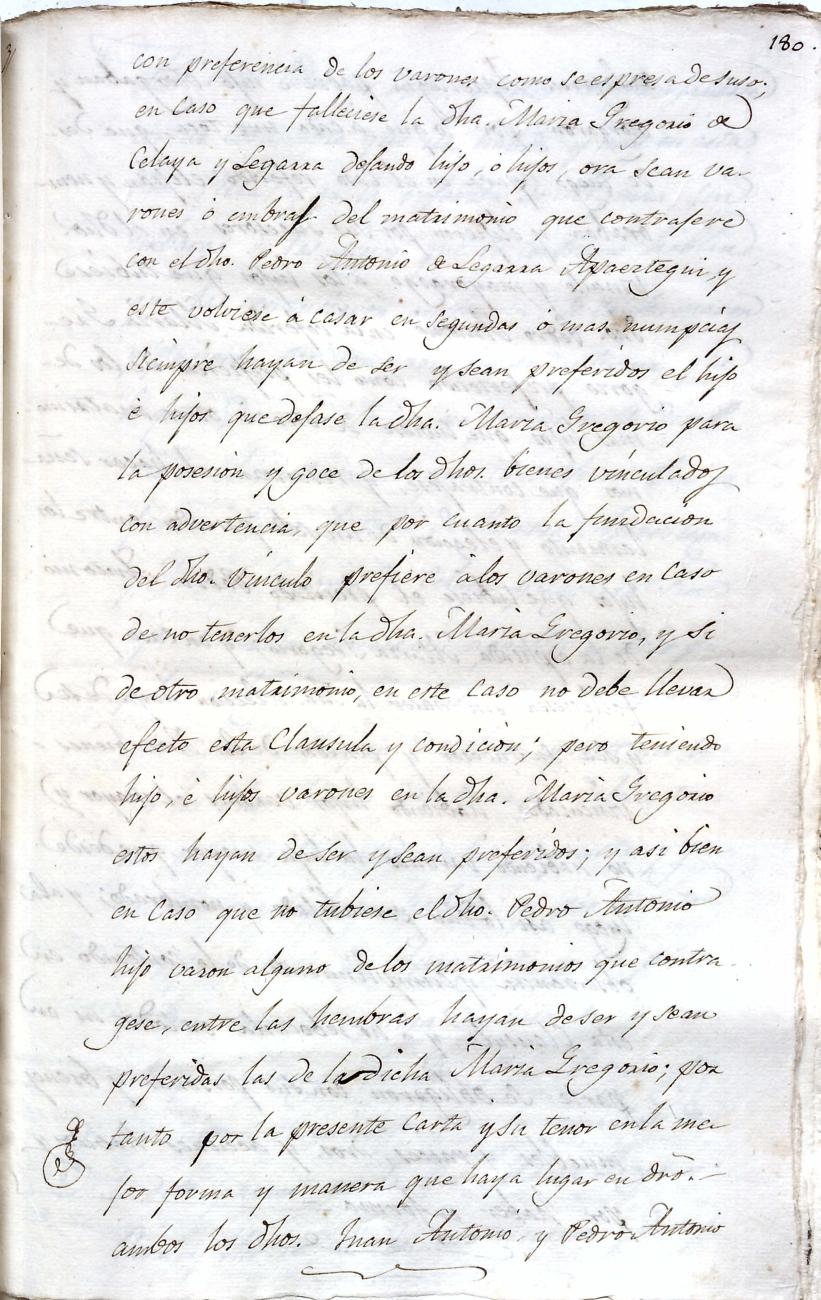 180.
con preferencia de los varones como se espresa desuso;
en Caso que falleciese la dha. Maria Gregorio de
Celaya y Legarra dejando hijo, o hijos, ora sean va-
rones ó embras del matrimonio que contrajere
con el dho. Pedro Antonio de Legarra Apaeztegui, y
este volviese á casar en segundas ó mas numpcias
siempre hayan de ser y sean preferidos el hijo
é hijos que dejase la dha. Maria Gregorio para
la posesion y goce de los dhos. bienes vinculados
con advertencia, que por cuanto la fundacion
del dho. vinculo prefiere álos varones en Caso
de no tenerlos en la dha. Maria Gregorio, y si
de otro matrimonio, en este Caso no debe llevar
efecto esta Clausula y condicion; pero teniendo
hijo, é hijos varones en la dha. Maria Gregorio
estos hayan de ser y sean preferidos; y asi bien
en Caso que no tubiese el dho. Pedro Antonio
hijo varon alguno de los matrimonios que contra-
gese, entre las hembras hayan de ser y sean
preferidas las de la dicha Maria Gregorio; por
tanto por la presente Carta y su tenor en la me-
jor forma y manera que haya lugar en dro.
ambos los dhos. Juan Antonio y Pedro Antonio